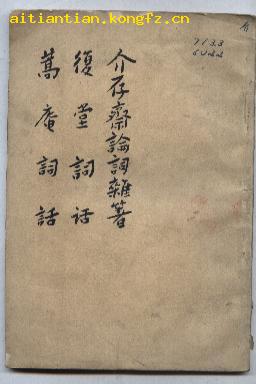 aitiantian.kongfz.cn
介存齋論詞雜著
復堂詞话
蒿庵詞話
713.3